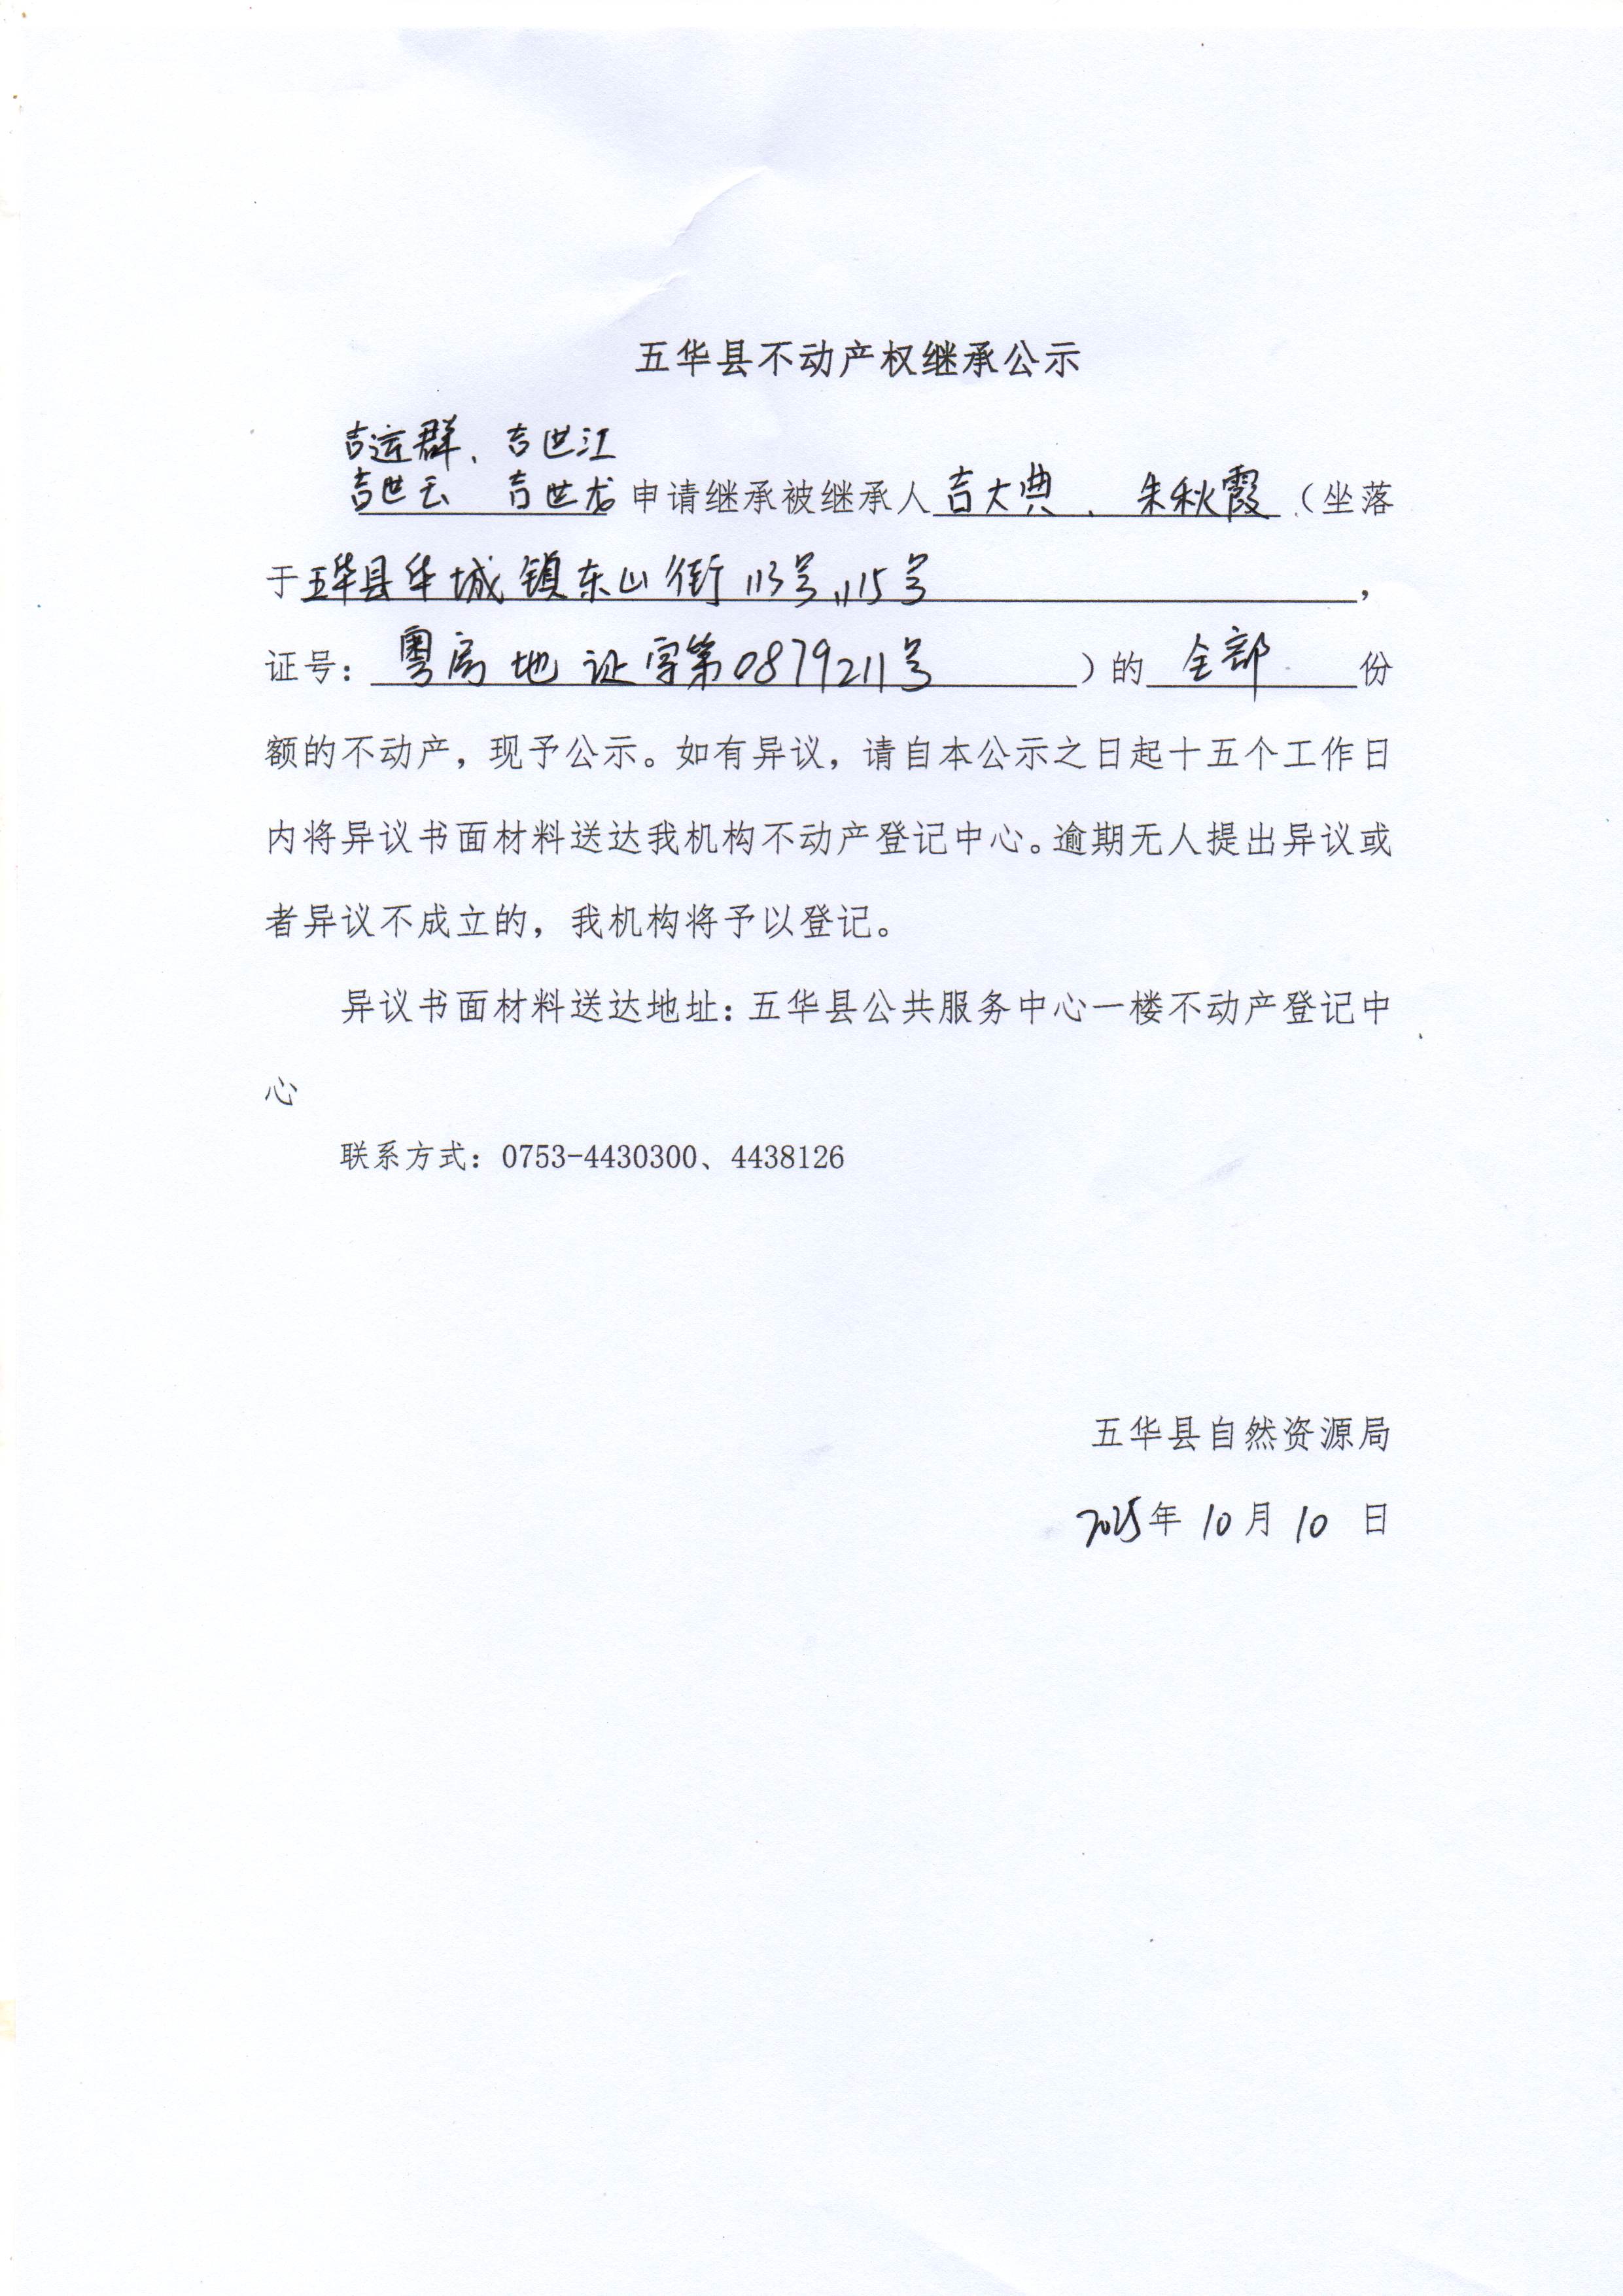 五华县不动产权继承公示
吉运群、吉世江
吉世云 吉世龙申请继承被继承人吉大典、朱秋霞（坐落
于五华县华城镇东山街113号,115号，
证号：粤房地证字第0879211号）的全部份
额的不动产，现予公示。如有异议，请自本公示之日起十五个工作日
内将异议书面材料送达我机构不动产登记中心。逾期无人提出异议或
者异议不成立的，我机构将予以登记。
异议书面材料送达地址：五华县公共服务中心一楼不动产登记中
心
联系方式：0753-4430300、4438126
五华县自然资源局
2025年10月10日